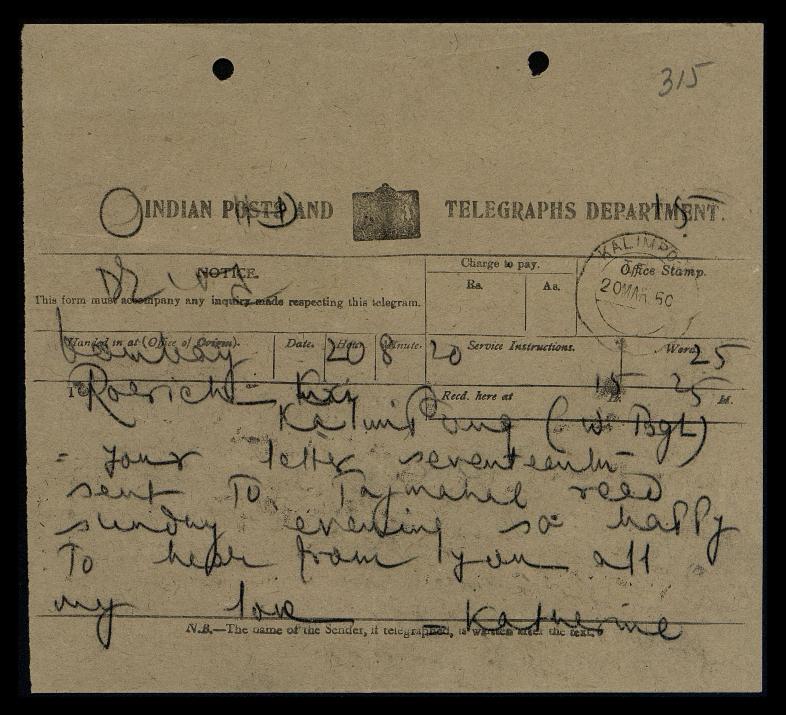 315
INDIAN POSTS AND TELEGRAPHS DEPARTMENT.
15
KALIMPO
20 MAR 50
NOTICE.
This form must accompany any inquiry made respecting this telegram.
Charge to pay.
Rs. As.
Office Stamp.
Handed in at (Office of Origin). Date. Hour. Minute. Service Instructions. Words.
Bombay 20 8 20 25
To Roerich =
Recd. here at 15 H. 25 M.
Kalimpong (W Bgl)
= your letter seventeenth
sent To Tajmahal recd
sunday evening so happy
To hear from you all
my love = Katherine
N.B.—The name of the Sender, if telegraphed, is written after the text.